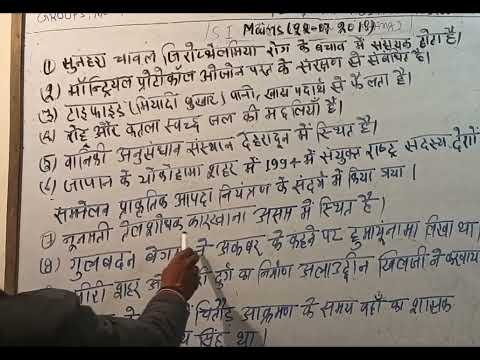 GROUPS,
SI Mains (22-07-2018)
① सुनहरा चावल जिरोप्थैलमिया रोग के बचाव में सहायक होता है।
(2) मॉन्ट्रियल प्रोटोकॉल ओजोन परत के संरक्षण से संबंधित है।
(3) टाइफाइड (मियादी बुखार) पानी, खाद्य पदार्थ से फैलता है।
(4) रोहू और कतला स्वच्छ जल की मछलियाँ है।
(5) वानिकी अनुसंधान संस्थान देहरादून में स्थित है।
(6) जापान के योकोहामा शहर में 1994 में संयुक्त राष्ट्र सदस्य देशों
सम्मेलन प्राकृतिक आपदा नियंत्रण के संदर्भ में किया गया।
⑦ नूनमती तेलशोधक कारखाना असम में स्थित है।
(8) गुलबदन बेगम ने अकबर के कहने पर हुमायूँनामा लिखा था।
सीरी शहर दुर्ग का निर्माण अलाउद्दीन खिलजी ने करवाया
चितौड़ आक्रमण के समय वहाँ का शासक
सिंह था।